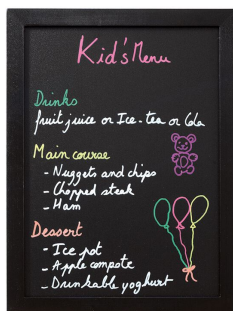 Kid's Menu
Drinks
fruit juice or Ice-tea or Cola
Main course
- Nuggets and chips
- Chopped steak
- Ham
Dessert
- Ice pot
- Apple compote
- Drinkable yoghurt